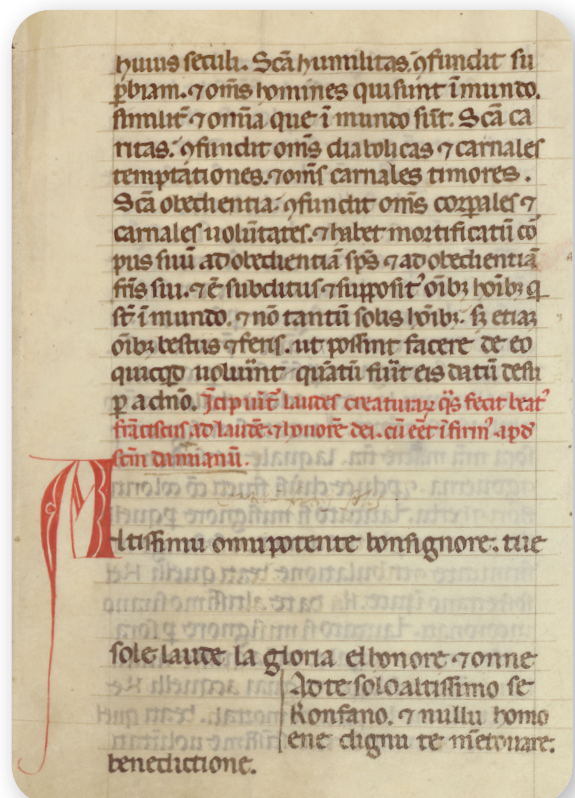 huius seculi. Scā humilitas ꝯfundit su
ꝑbiam. ⁊ om̄s homines qui sunt ī mundo.
similit̄ ⁊ om̄ia que ī mundo sūt. Scā ca
ritas. ꝯfundit om̄s diabolicas ⁊ carnales
temptationes. ⁊ om̄s carnales timores.
Scā obedientia. ꝯfundit om̄s corꝑales ⁊
carnales uolūtates. ⁊ habet mortificatū co᷒
pus suū ad obedientiā sp̄s ⁊ ad obedientiā
fr̄is sui. ⁊ ē subditus ⁊ supposit᾽ oīb₃ hoīb₃ q
st̄ ī mundo. ⁊ nō tantū solis hoīb₃. s₃ etiaꝫ
oīb₃ bestiis ⁊ feris. ut possint facere de eo
quicqd uoluīnt quātū fu᷒it eis datū desu
ꝑ a dn̄o. Jncipiūt laudes creaturaꝝ q̄s fecit beat᾽
frāciscus ad laudē ⁊ honorē dei. cū eēt ī firm᾽ apd
scm̄ damianū.
Altissimu omnipotente bonsignore. tue
sole laude la gloria elhonore ⁊onne
Adte soloaltissimo se
Konfano. ⁊ nullu homo
ene dignu te mētouare.
benedictione.